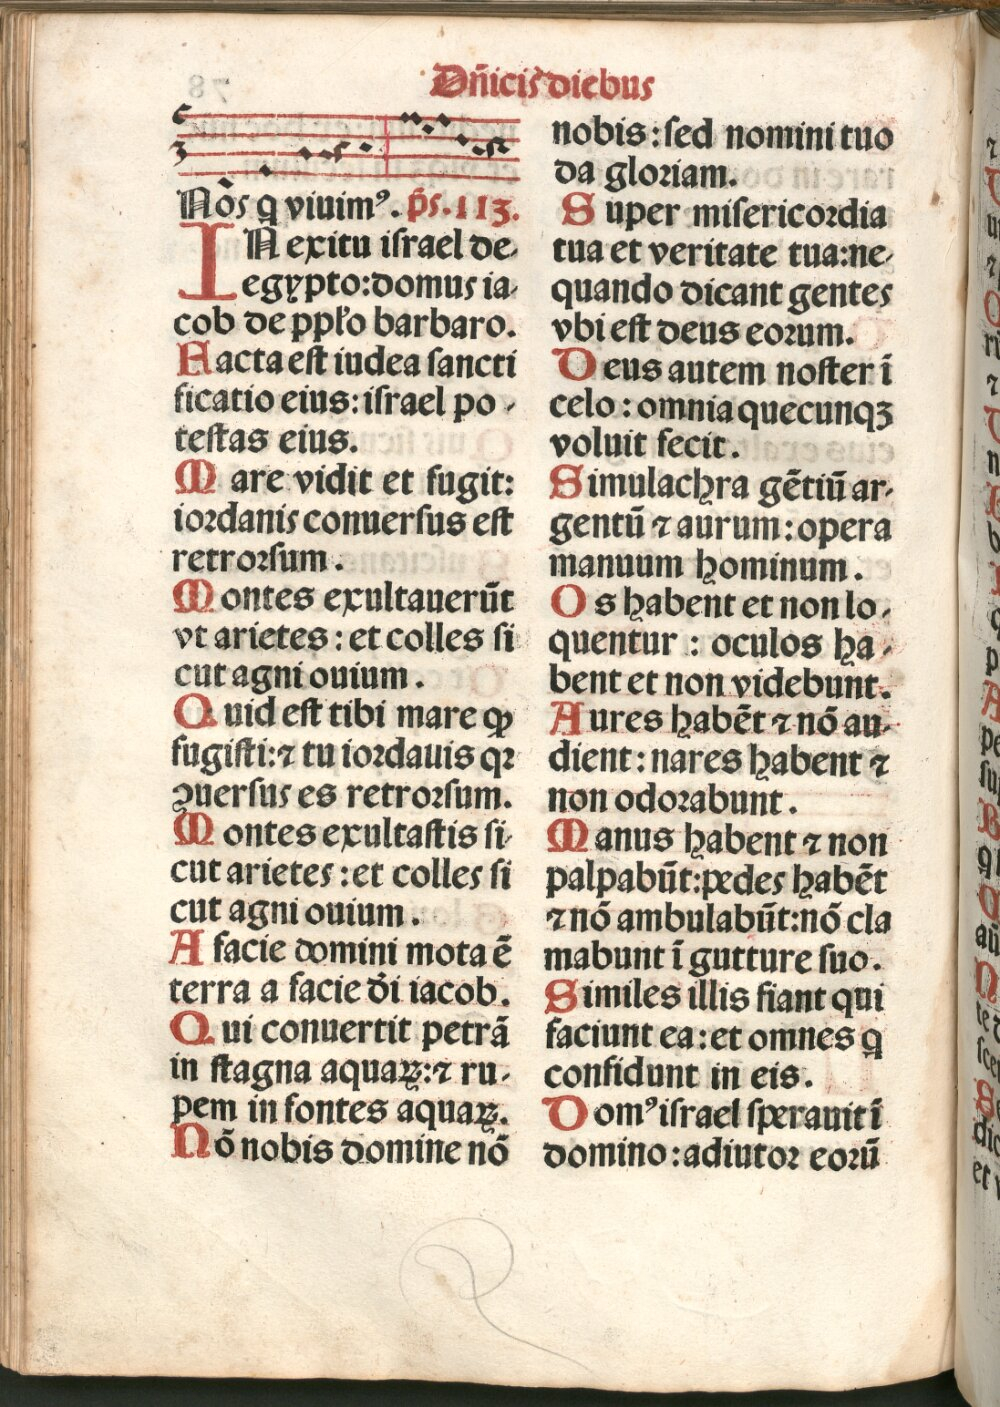 Dn̄icis diebus
Nos̄ q viuimꝰ. p̄s. 113.
IN exitu israel de
egypto: domus ia-
cob de ppło barbaro.
Facta est iudea sancti
ficatio eius: israel po-
testas eius.
Mare vidit et fugit:
iordanis conuersus est
retrorsum.
Montes exultauerūt
vt arietes: et colles si
cut agni ouium.
Quid est tibi mare ꝙ
fugisti: ⁊ tu iordauis qꝛ
ꝯuersus es retrorsum.
Montes exultastis si-
cut arietes: et colles si
cut agni ouium.
A facie domini mota ē
terra a facie d̄i iacob.
Qui conuertit petrā
in stagna aquaꝝ: ⁊ ru-
pem in fontes aquaꝝ.
Nō nobis domine nō
nobis: sed nomini tuo
da gloriam.
Super misericordia
tua et veritate tua: ne-
quando dicant gentes
vbi est deus eorum.
Deus autem noster ī
celo: omnia quecunqꝫ
voluit fecit.
Simulachra gētiū ar-
gentū ⁊ aurum: opera
manuum hominum.
Os habent et non lo-
quentur: oculos ha-
bent et non videbunt.
Aures habēt ⁊ nō au-
dient: nares habent ⁊
non odorabunt.
Manus habent ⁊ non
palpabūt: pedes habēt
⁊ nō ambulabūt: nō cla
mabunt ī gutture suo.
Similes illis fiant qui
faciunt ea: et omnes q
confidunt in eis.
Domꝰ israel sperauit ī
domino: adiutor eorū